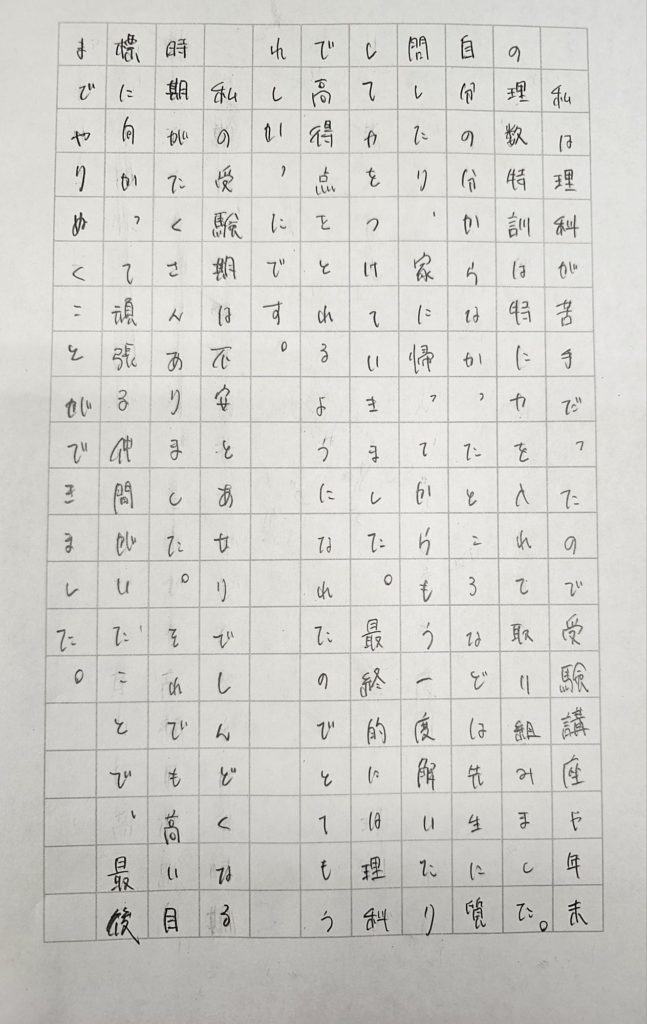 私は理科が苦手だったので受験講座や年末
の理数特訓は特に力を入れて取り組みました。
自分の分からなかったところなどは先生に質
問したり、家に帰ってからもう一度解いたり
して力をつけていきました。最終的には理科
で高得点をとれるようになれたのでとてもう
れしかったです。
私の受験期は不安とあせりでしんどくなる
時期がたくさんありました。それでも高い目
標に向かって頑張る仲間がいたことで、最後
までやりぬくことができました。